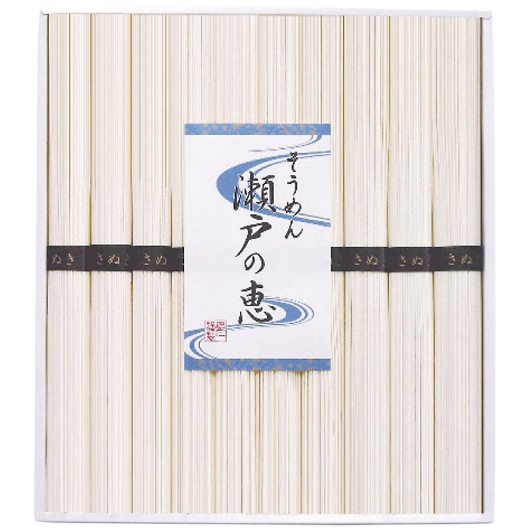 そうめん
瀬戸の恵
さぬき
さぬ
さぬ
さぬ
さぬ
さぬ